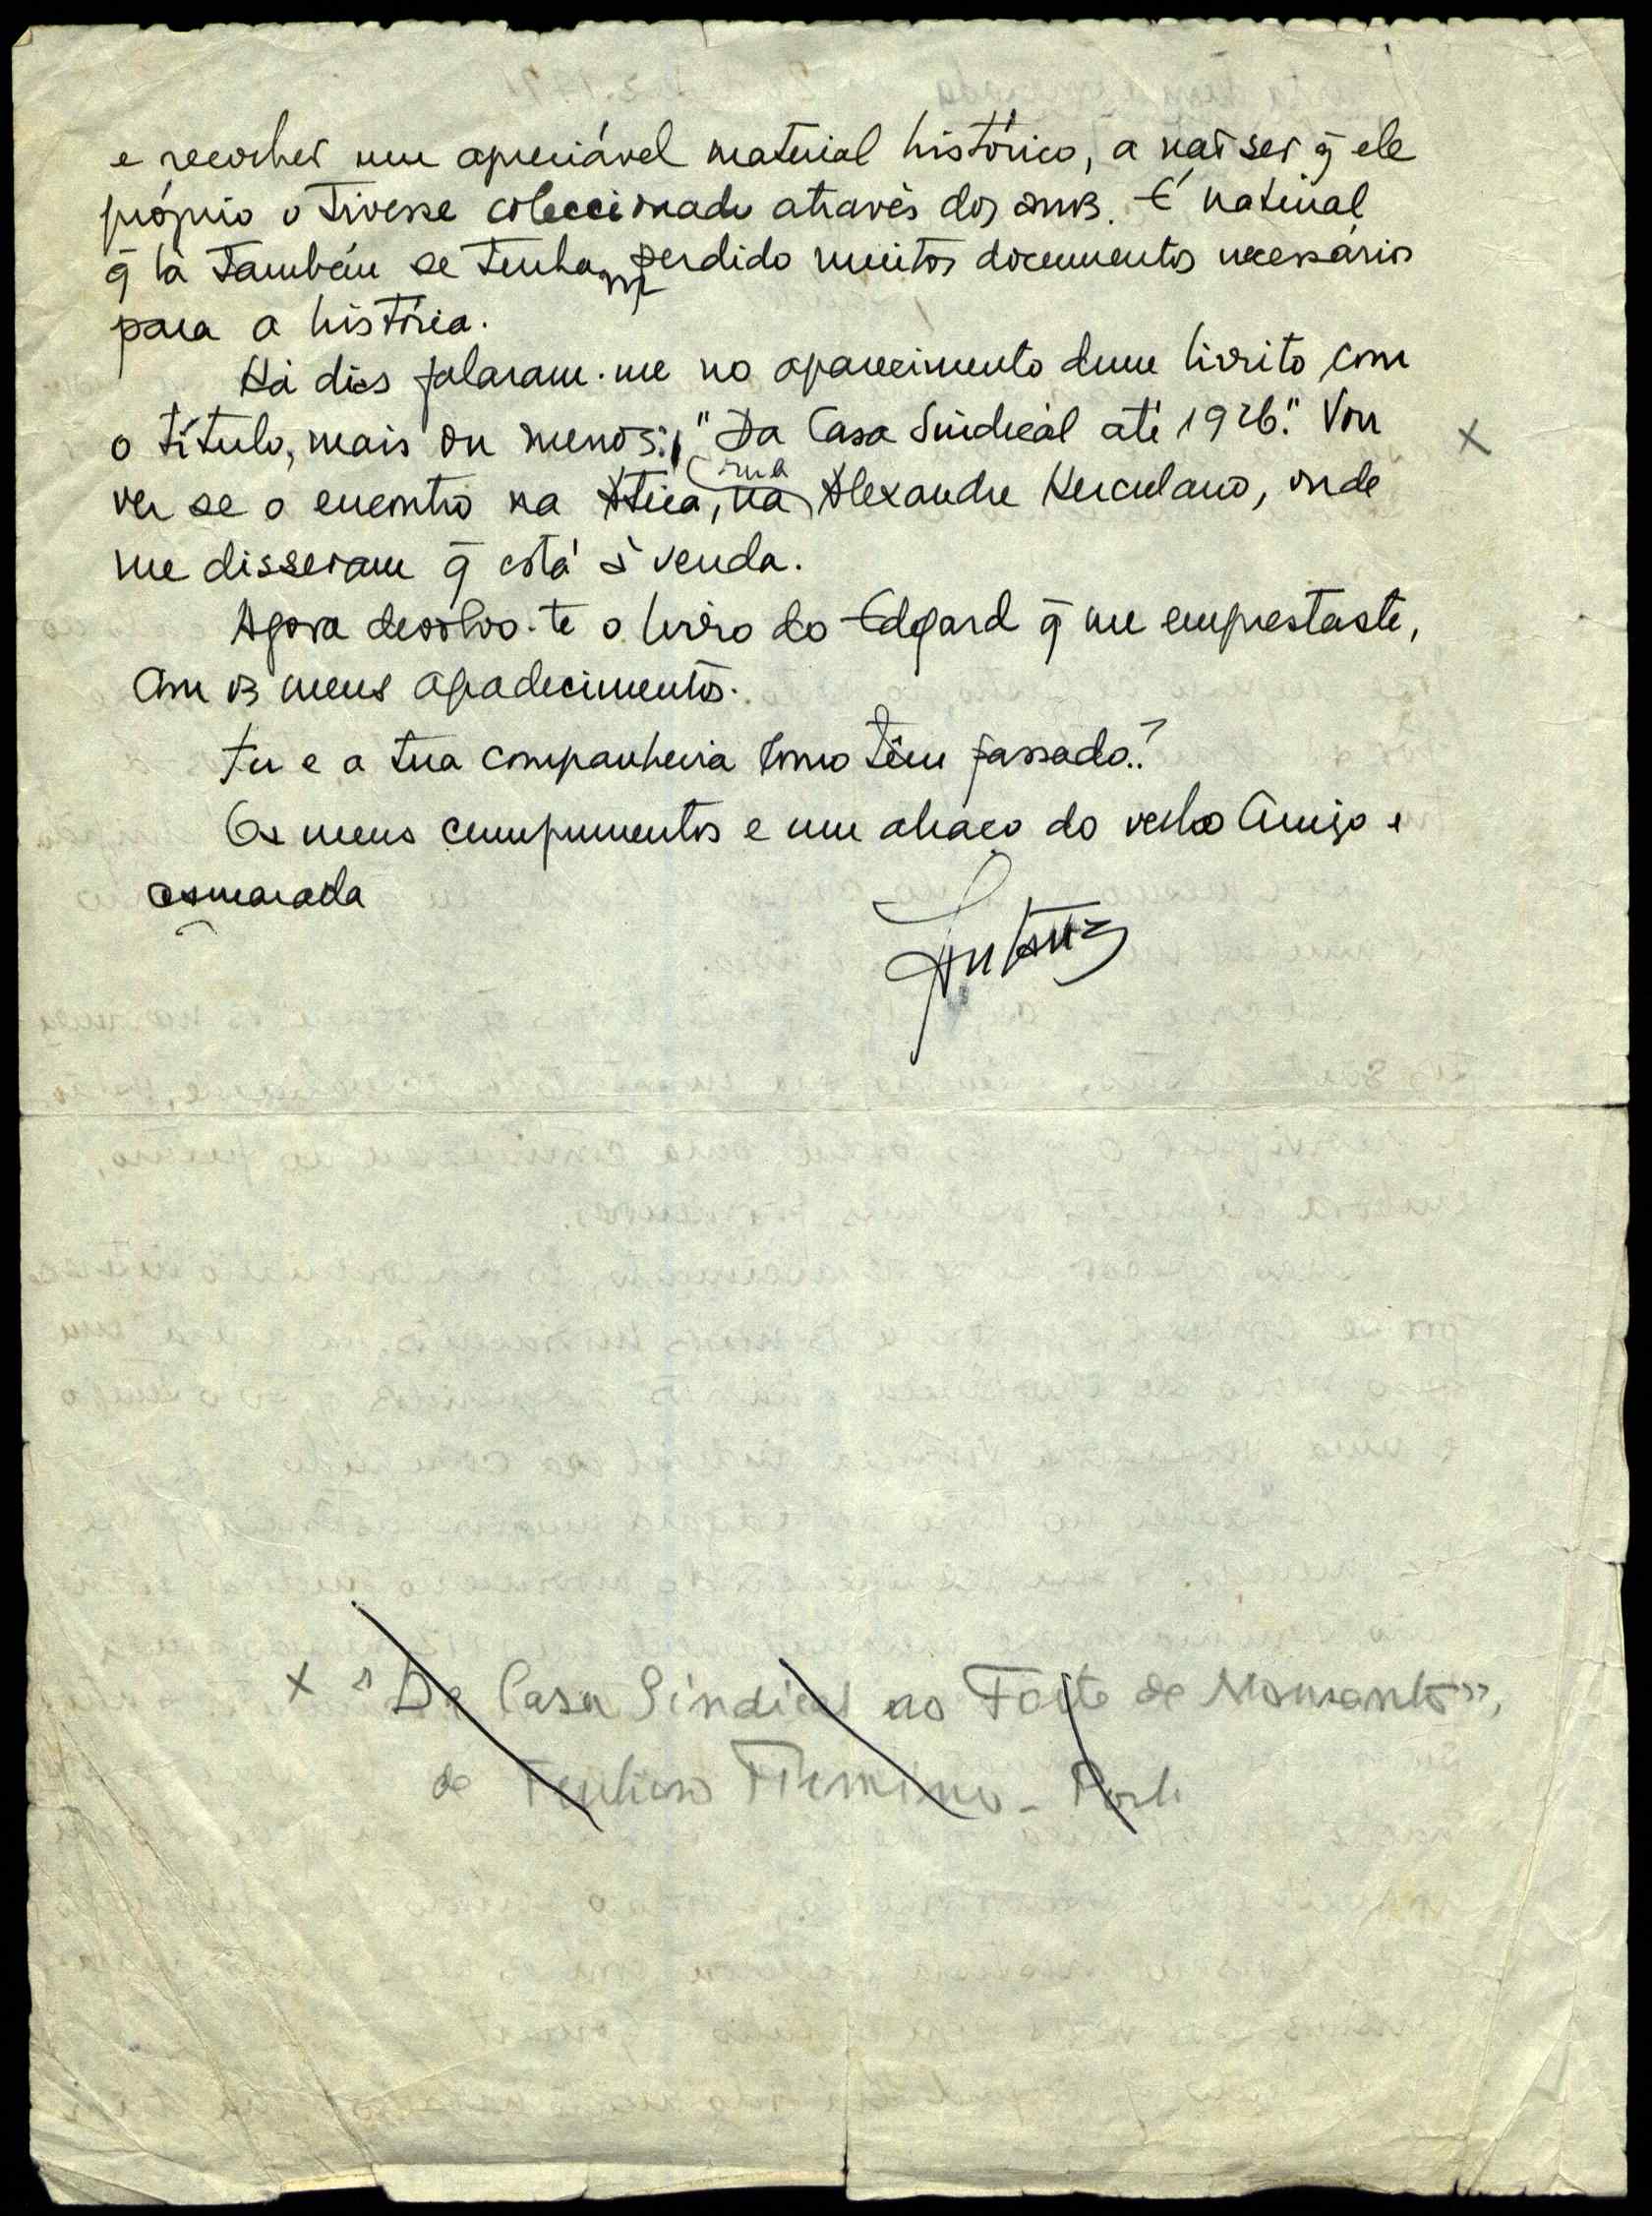 e recolher um apreciável material histórico, a não ser q̄ ele
próprio o tivesse coleccionado através dos anos. É natural
q̄ lá também se tenham perdido muitos documentos necessários
para a história.
Há dias falaram-me no aparecimento dum livrito com
o título, mais ou menos: "Da Casa Sindical até 1926." Vou X
ver se o encontro na Ática, na rua Alexandre Herculano, onde
me disseram q̄ está à venda.
Agora devolvo-te o livro do Edgard q̄ me emprestaste,
com os meus agradecimentos.
Tu e a tua companheira como têm passado?
Os meus cumprimentos e um abraço do velho amigo e
camarada
X "Da Casa Sindical ao Forte de Monsanto",
de Firmino